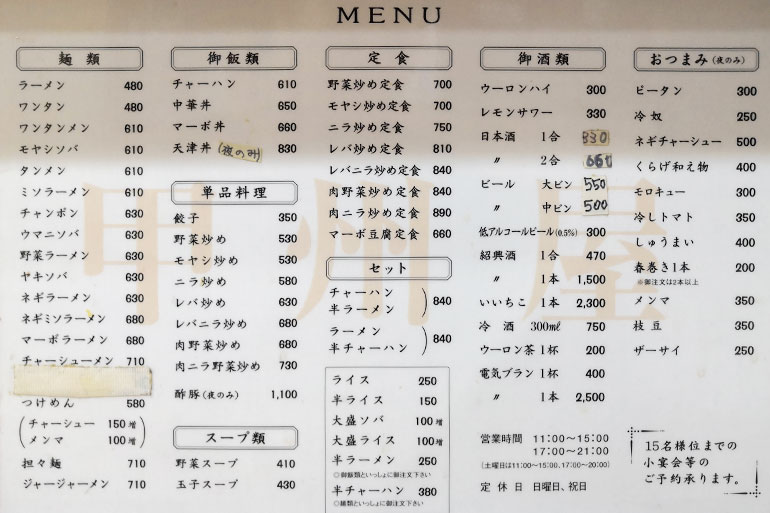 MENU
麺類
ラーメン 480
ワンタン 480
ワンタンメン 610
モヤシソバ 610
タンメン 610
ミソラーメン 610
チャンポン 630
ウマニソバ 630
野菜ラーメン 630
ヤキソバ 630
ネギラーメン 630
ネギミソラーメン 680
マーボラーメン 680
チャーシューメン 710
つけめん 580
(チャーシュー 150増
メンマ 100増)
担々麺 710
ジャージャーメン 710
御飯類
チャーハン 610
中華丼 650
マーボ丼 660
天津丼 (夜のみ) 830
単品料理
餃子 350
野菜炒め 530
モヤシ炒め 530
ニラ炒め 580
レバ炒め 630
レバニラ炒め 680
肉野菜炒め 680
肉ニラ野菜炒め 730
酢豚(夜のみ) 1,100
スープ類
野菜スープ 410
玉子スープ 430
定食
野菜炒め定食 700
モヤシ炒め定食 700
ニラ炒め定食 750
レバ炒め定食 810
レバニラ炒め定食 840
肉野菜炒め定食 840
肉ニラ炒め定食 890
マーボ豆腐定食 660
セット
チャーハン
半ラーメン ) 840
ラーメン
半チャーハン ) 840
ライス 250
半ライス 150
大盛ソバ 100増
大盛ライス 100増
半ラーメン 250
◎御飯類といっしょに御注文下さい
半チャーハン 380
◎麺類といっしょに御注文下さい
御酒類
ウーロンハイ 300
レモンサワー 330
日本酒 1合 330
〃 2合 660
ビール 大ビン 550
〃 中ビン 500
低アルコールビール(0.5%) 300
紹興酒 1合 470
〃 1本 1,500
いいちこ 1本 2,300
冷酒 300㎖ 750
ウーロン茶 1杯 200
電気ブラン 1杯 400
〃 1本 2,500
営業時間 11:00〜15:00
17:00〜21:00
(土曜日は11:00〜15:00、17:00〜20:00)
定休日 日曜日、祝日
おつまみ(夜のみ)
ピータン 300
冷奴 250
ネギチャーシュー 500
くらげ和え物 400
モロキュー 300
冷しトマト 350
しゅうまい 400
春巻き1本 200
※御注文は2本以上
メンマ 350
枝豆 350
ザーサイ 250
15名様位までの
小宴会等の
ご予約承ります。
甲州屋